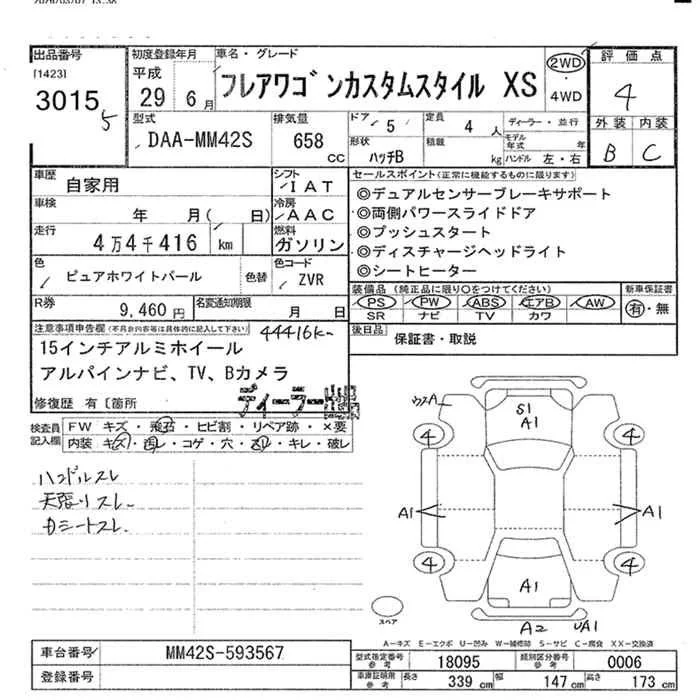 出品番号 初度登録年月 車名・グレード 評価点
[1423] 平成
3015 29 年 6 月 フレアワゴンカスタムスタイル XS 2WD ・ 4WD 4
5
型式 排気量 ドア 5 定員 4 人 ディーラー・並行 外装 内装
DAA-MM42S 658 cc 形状 ハッチB 積載 kg モデル年式 年 ハンドル 左・右 B C
車歴 自家用 シフト IAT セールスポイント(正常に機能するものに限ります)
車検 年 月( 日) 冷房 AAC ◎デュアルセンサーブレーキサポート
走行 4万4千416 km 燃料 ガソリン ◎両側パワースライドドア
◎プッシュスタート
◎ディスチャージヘッドライト
◎シートヒーター
色 ピュアホワイトパール 色替 色コード ZVR
装備品(純正品に限り○をつけてください) 新車保証書
PS PW ABS エアB AW 有・無
SR ナビ TV カワ
R券 9,460円 名変通知期限 月 日
後日品 保証書・取説
注意事項申告欄(不具合内容等は具体的に記入して下さい) 44416k
15インチアルミホイール
アルパインナビ、TV、Bカメラ
ディーラー
修復歴 有〔箇所
検査員記入欄 FW キズ・飛石・ヒビ割・リペア跡・×要
内装 キズ・汚レ・コゲ・穴・スレ・キレ・破レ
ハンドルスレ
天張リスレ
カシートスレ
ウスA S1
A1
4 4
A1 A1
4 4
A1
スペア A2 UA1
A-キズ E-エクボ U-凹み W-補修跡 S-サビ C-腐食 XX-交換済
車台番号 MM42S-593567
登録番号
型式指定番号 参考 18095 類別区分番号 参考 0006
車庫証明用 参考 長さ 339 cm 幅 147 cm 高さ 173 cm